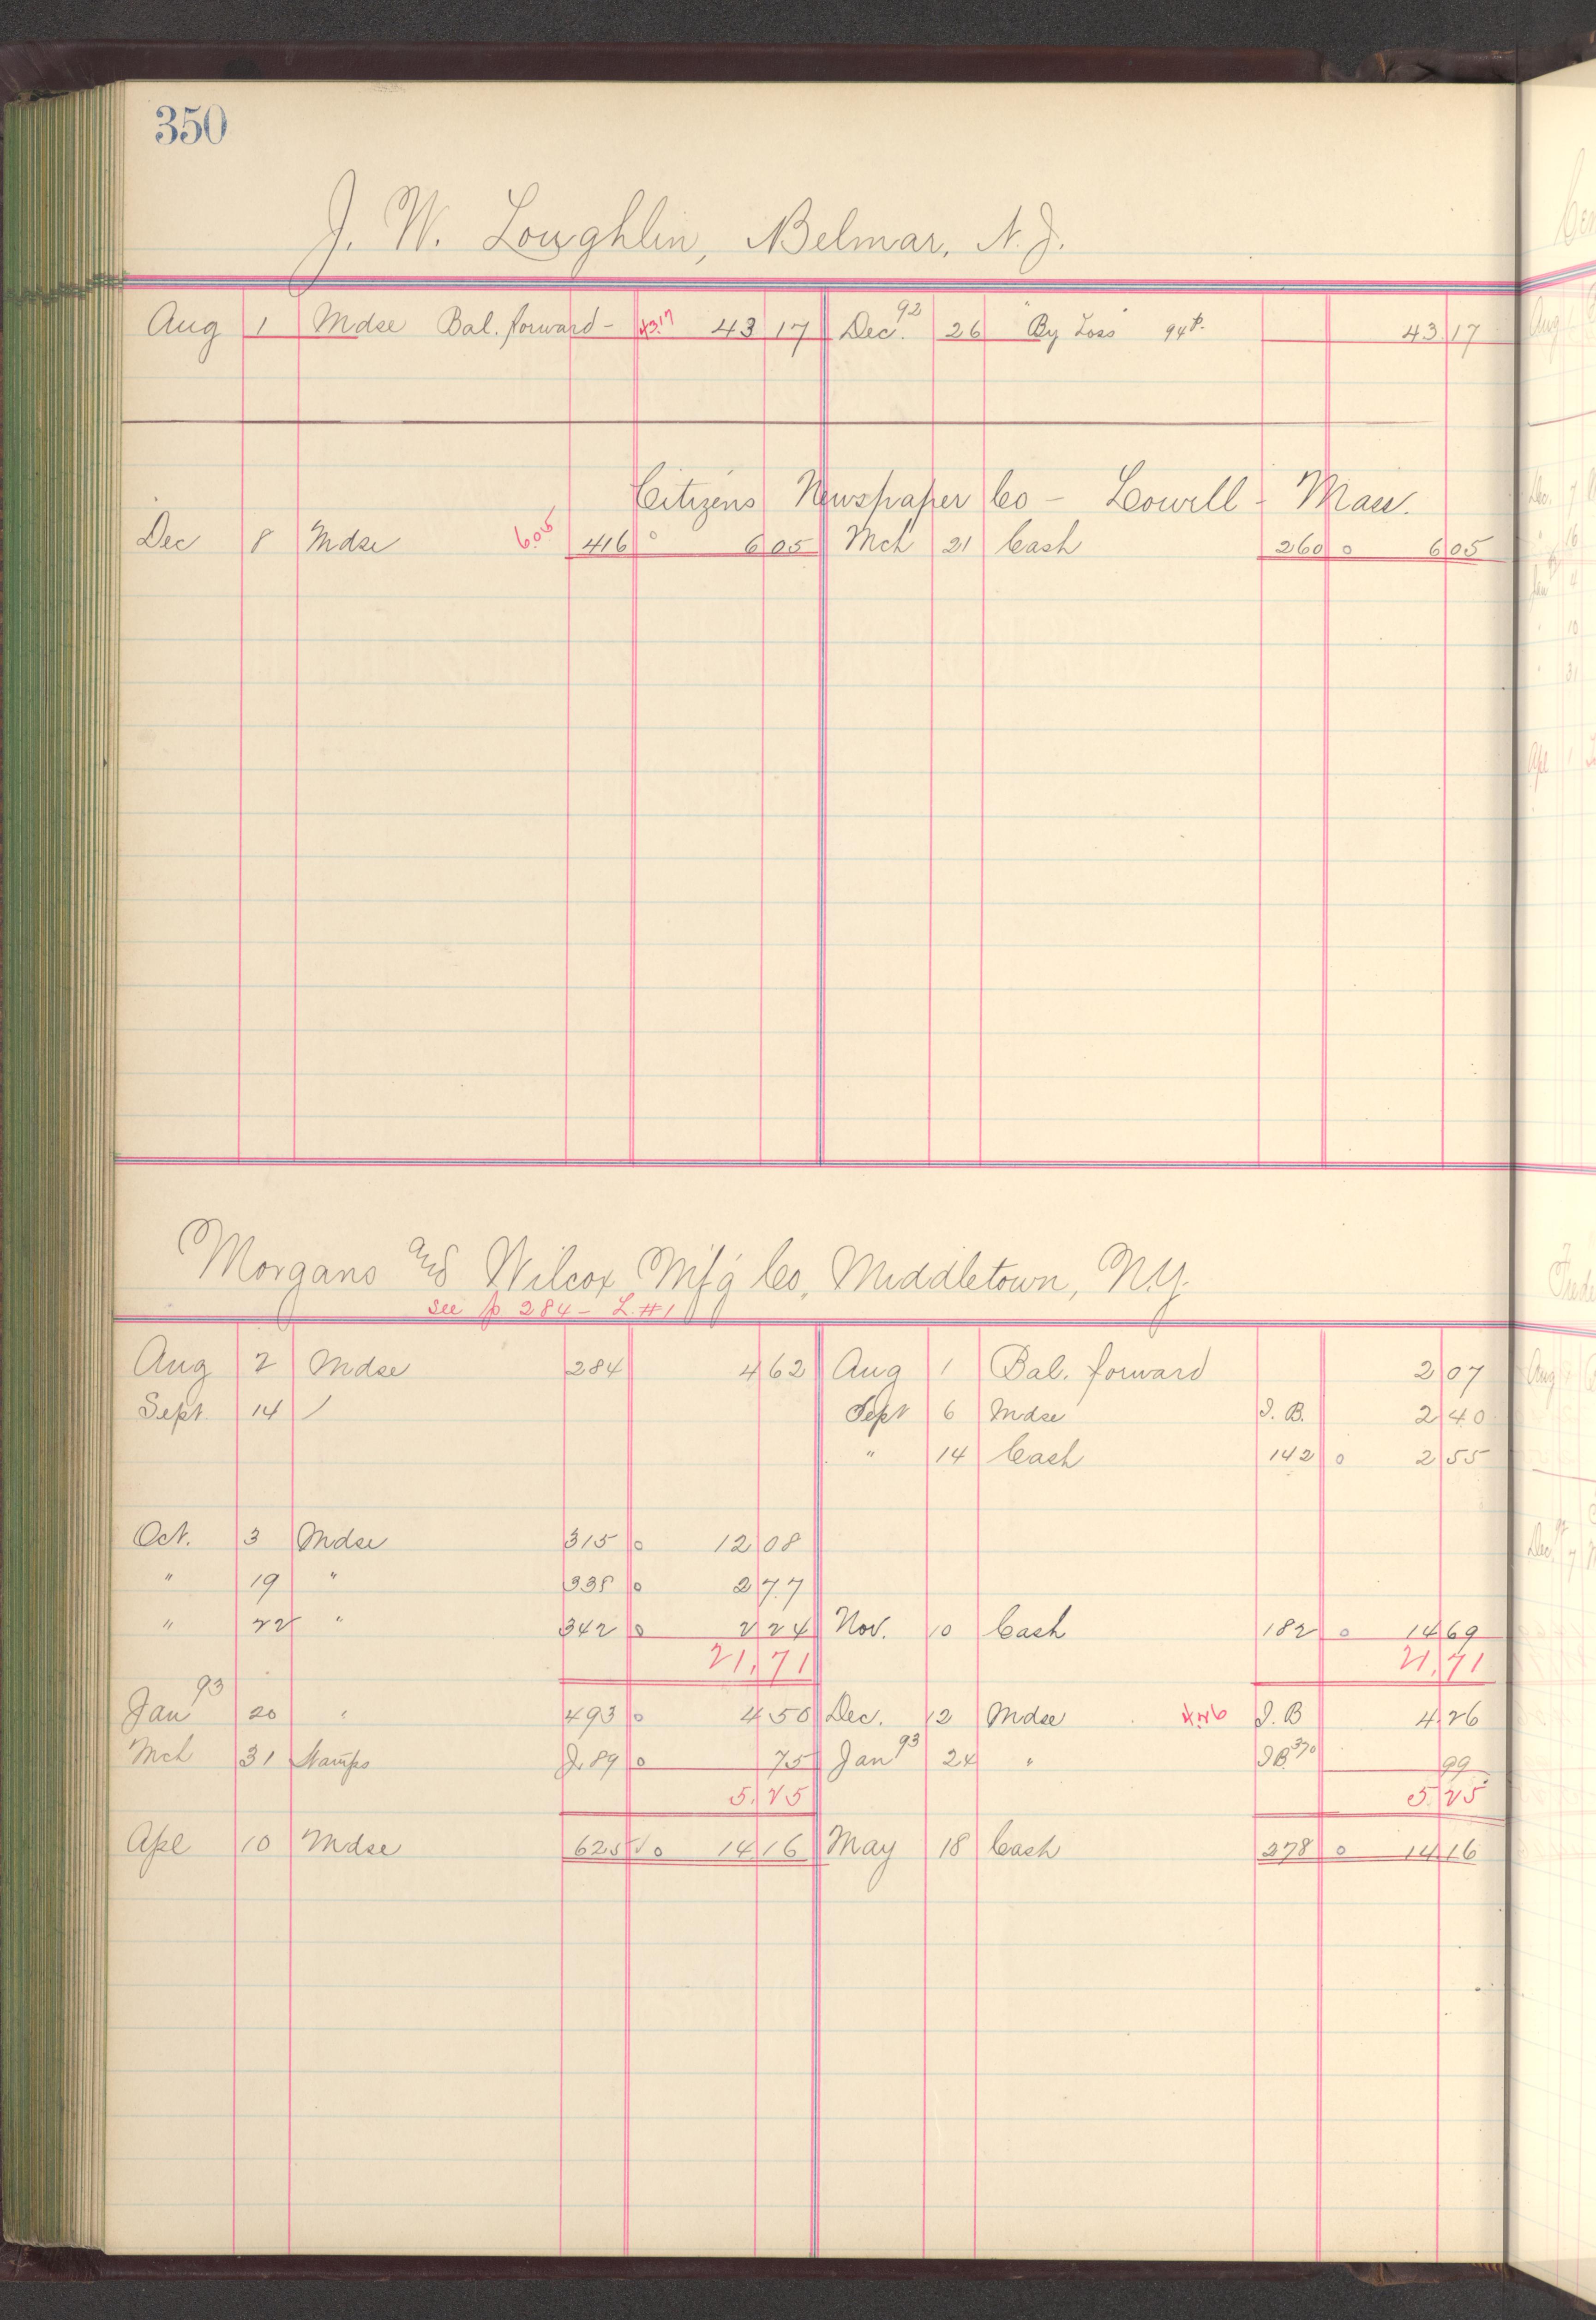 350
J. W. Loughlin, Belmar, N. J.
Aug 1 Mdse Bal. forward - 43.17 43 17 Dec. 92 26 By Loss 43 17
Citizens Newspaper Co - Lowell - Mass.
Dec 8 Mdse 6.05 416 0 6 05 Mch 21 Cash 260 0 6 05
Morgans and Wilcox Mf'g Co, Middletown, N.Y.
See p 284 - L. #1
Aug 2 Mdse 284 4 62 Aug 1 Bal. forward 2 07
Sept. 14 Sept 6 Mdse J. B. 2 40
" 14 Cash 142 0 2 55
Oct. 3 Mdse 315 0 12 08
" 19 " 338 0 2 77
" 22 " 342 0 2 24 Nov. 10 Cash 182 0 14 69
21.71 21.71
Jan 93 20 " 493 0 4 50 Dec. 12 Mdse 4.26 J. B 4 26
Mch 31 Stamps J. 89 0 75 Jan 93 24 " 99
5.25 5.25
Apl 10 Mdse 625 0 14 16 May 18 Cash 278 0 14 16